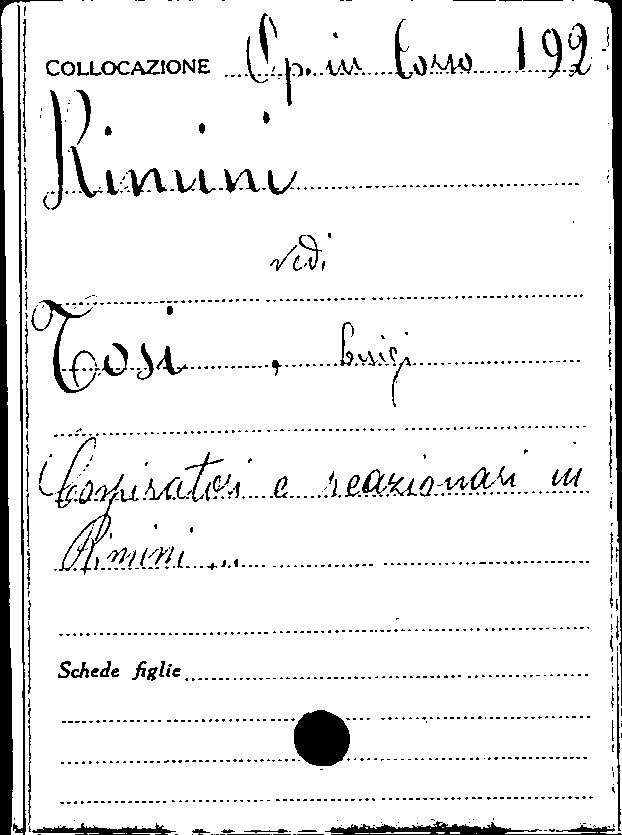 COLLOCAZIONE Op. in Corso 192
Rimini
vedi
Tosi, Luigi
Cospiratori e reazionari in
Rimini ...
Schede figlie